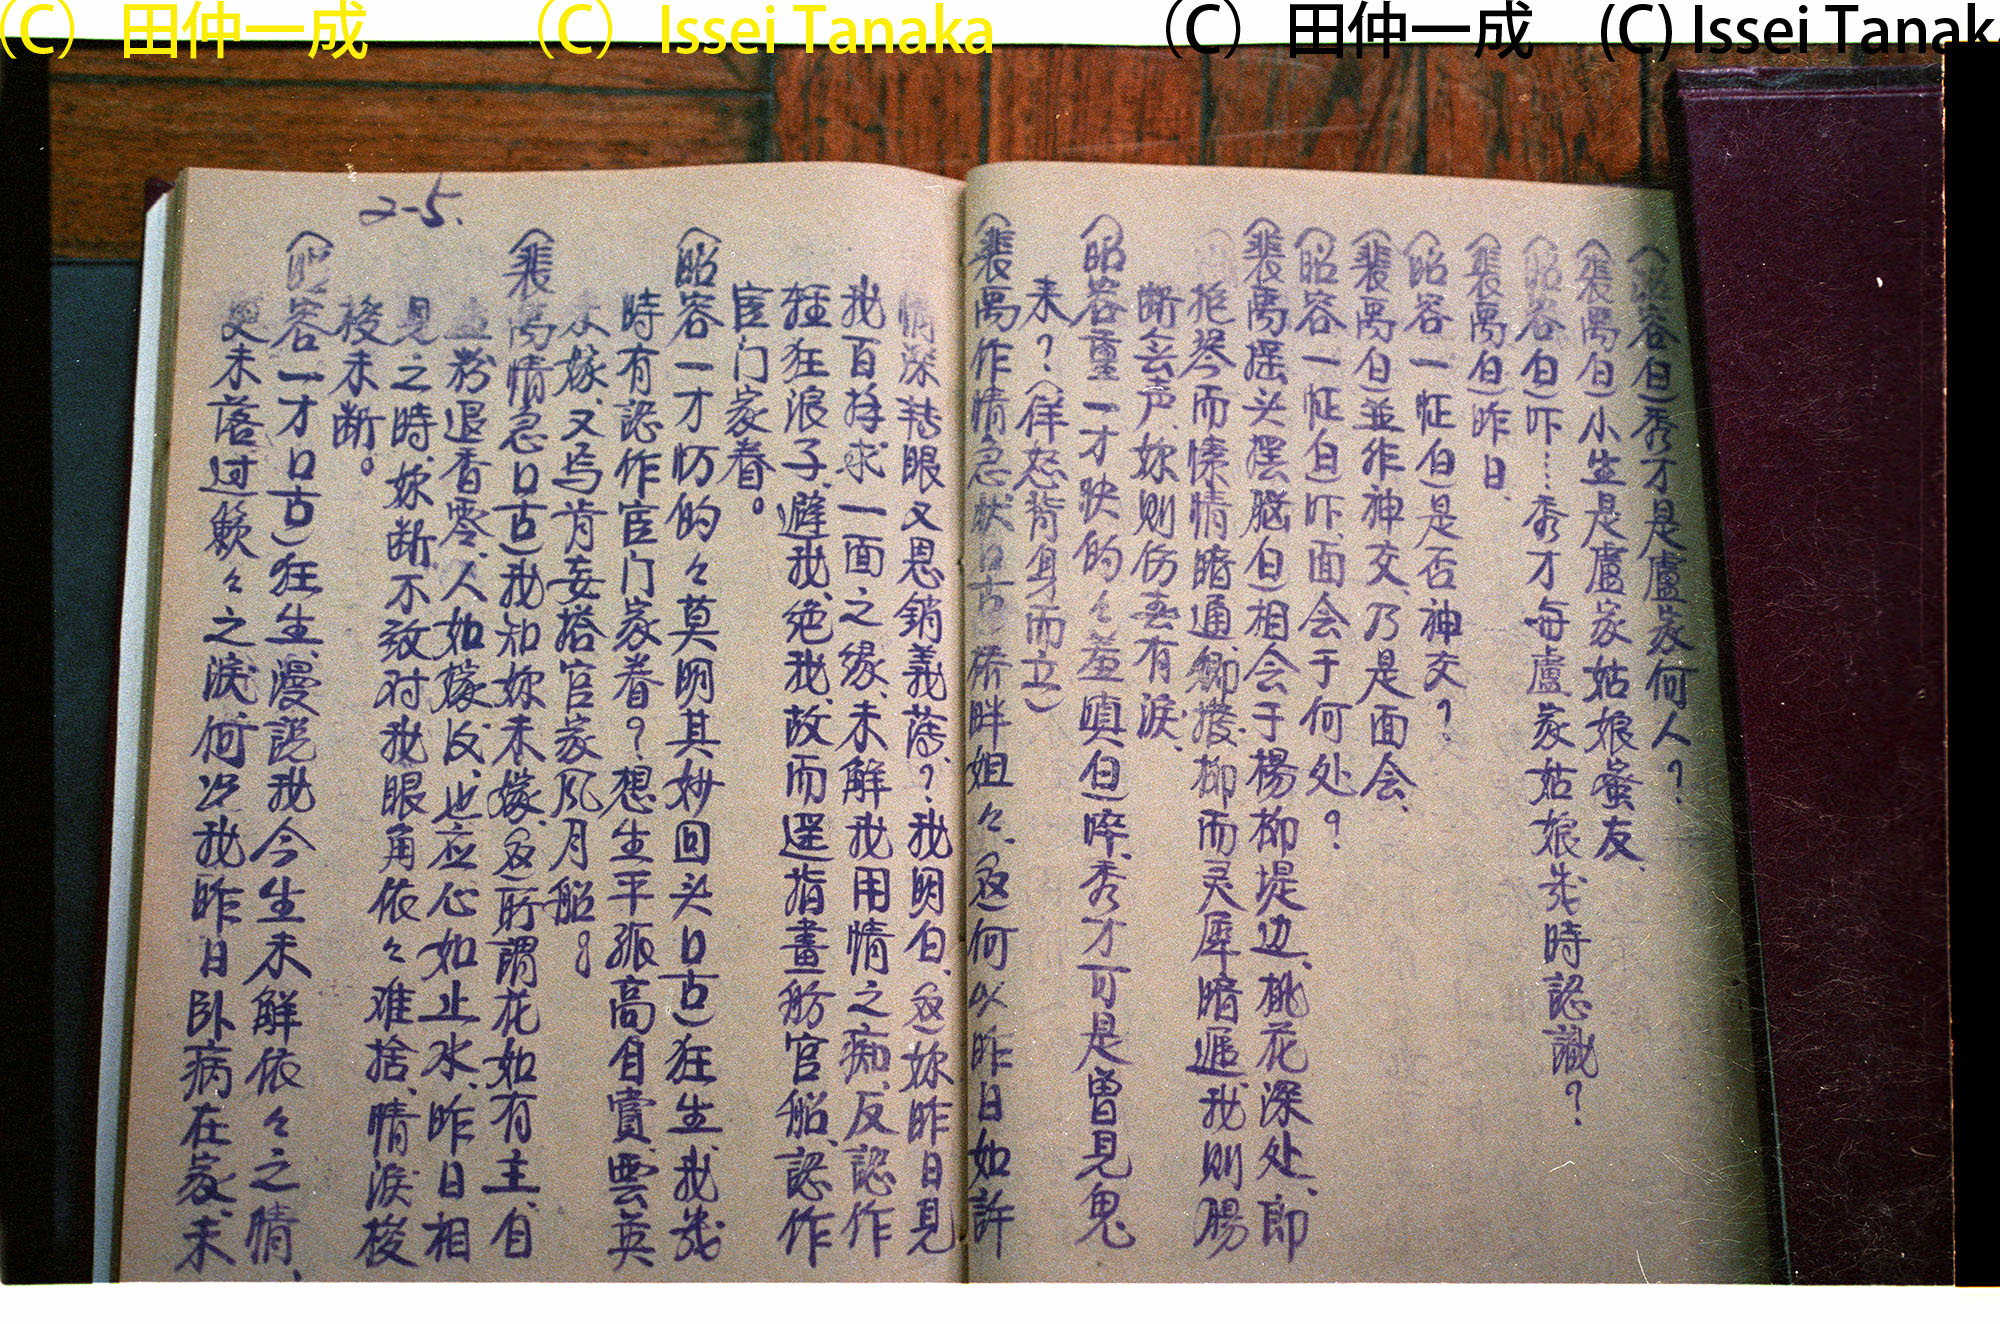 (C) 田仲一成 (C) Issei Tanaka (C) 田仲一成 (C) Issei Tanak
(昭容白)秀才是盧家何人?
(裴禹白)小生是盧家姑娘蜜友、
(昭容白)吓……秀才每盧家姑娘几時認識?
(裴禹白)昨日、
(昭容一怔白)是否神交?
(裴禹白)並非神交、乃是面会、
(昭容一怔白)吓、面会于何处?
(裴禹摇头摆脑白)相会于楊柳堤边、桃花深处、郎
抱琴而情暗通、卿攀柳而灵犀暗遞、我则腸
断去声、妳则伤春有淚、
(昭容重一才快的々羞嗔白)啐、秀才可是曾見鬼
未?(佯怒背身而立)
(裴禹作情急状口古)橋畔姐々、返何以昨日如許
情深轉眼又恩銷義落?我明白、返妳昨日見
我百择求一面之緣、未解我用情之痴、反認作
狂浪子、避我、绝我、故而遥指畫舫官船、認作
官门家眷。
(昭容一才忉的々莫明其妙回头口古)狂生、我几
時有認作官门家眷?想生平孤高自賞、雲英
未嫁、又焉肯妄搭官家风月船?
(裴禹情急口古)我知妳未嫁、返所謂花如有主、自
盡粉退香零、人如嫁、也应心如止水、昨日相
見之時、妳断不致对我眼角依々难捨、情淚梭
梭未断。
(昭容一才口古)狂生、漫說我今生未解依々之情、
更未落过簌々之淚、何况我昨日卧病在家、未
2-5.